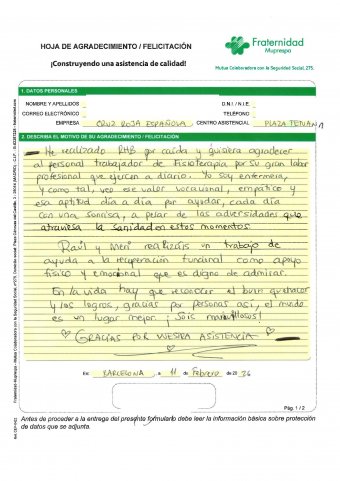 HOJA DE AGRADECIMIENTO / FELICITACIÓN
¡Construyendo una asistencia de calidad!
Fraternidad
Muprespa
Mutua Colaboradora con la Seguridad Social, 275.
1. DATOS PERSONALES
NOMBRE Y APELLIDOS
D.N.I. / N.I.E.
CORREO ELECTRÓNICO
TELÉFONO
EMPRESA CRUZ ROJA ESPAÑOLA CENTRO ASISTENCIAL PLAZA TETUANA
2. DESCRIBA EL MOTIVO DE SU AGRADECIMIENTO / FELICITACIÓN
He realizado RHB por caída y quisiera agradecer
al personal trabajador de Fisioterapia por su gran labor
profesional que ejercen a diario. Yo soy enfermera,
y como tal, veo ese valor vocacional, empático y
esa aptitud día a día por ayudar, cada día
con una sonrisa, a pesar de las adversidades que
atraviesa la sanidad en estos momentos.
Raúl y Meri realizáis un trabajo de
ayuda a la recuperación funcional como apoyo
físico y emocional que es digno de admirar.
En la vida hay que reconocer el buen quehacer
y los logros, gracias por personas así, el mundo
es un lugar mejor ¡Sois maravillosos!
GRACIAS POR VUESTRA ASISTENCIA
En BARCELONA, a 11 de Febrero de 2026
Pág. 1 / 2
Antes de proceder a la entrega del presente formulario debe leer la información básica sobre protección
de datos que se adjunta.